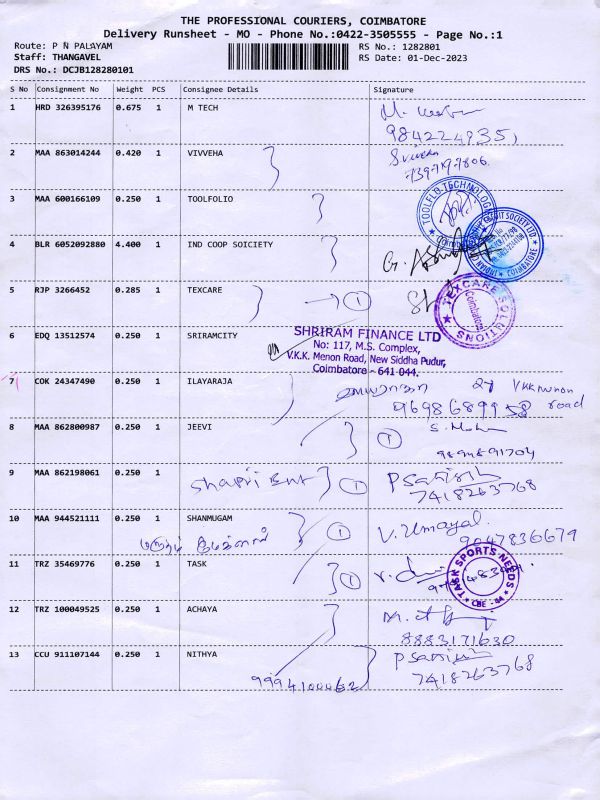 THE PROFESSIONAL COURIERS, COIMBATORE
Delivery Runsheet - MO - Phone No.:0422-3505555 - Page No.:1
Route: P N PALAYAM
Staff: THANGAVEL
DRS No.: DCJB128280101
RS No.: 1282801
RS Date: 01-Dec-2023
S No Consignment No Weight PCS Consignee Details Signature
1 HRD 326395176 0.675 1 M TECH
2 MAA 863014244 0.420 1 VIVVEHA
3 MAA 600166109 0.250 1 TOOLFOLIO
TOOLFLO TECHNOLOGY
4 BLR 6052092880 4.400 1 IND COOP SOICIETY
COIMBATORE
5 RJP 3266452 0.285 1 TEXCARE
1
TEXCARE SOLUTIONS
Coimbatore
6 EDQ 13512574 0.250 1 SRIRAMCITY
SHRIRAM FINANCE LTD
No: 117, M.S. Complex,
V.K.K. Menon Road, New Siddha Pudur,
Coimbatore - 641 044.
7 COK 24347490 0.250 1 ILAYARAJA
27 VKK menon road
9698689958
8 MAA 862800987 0.250 1 JEEVI
1
9 MAA 862198061 0.250 1
1
7418263768
10 MAA 944521111 0.250 1 SHANMUGAM
1 V. Umayal
9047836679
11 TRZ 35469776 0.250 1 TASK
1
TASK SPORTS NEEDS
CBE - 44
12 TRZ 100049525 0.250 1 ACHAYA
8883171630
13 CCU 911107144 0.250 1 NITHYA
9994100062
7418263768